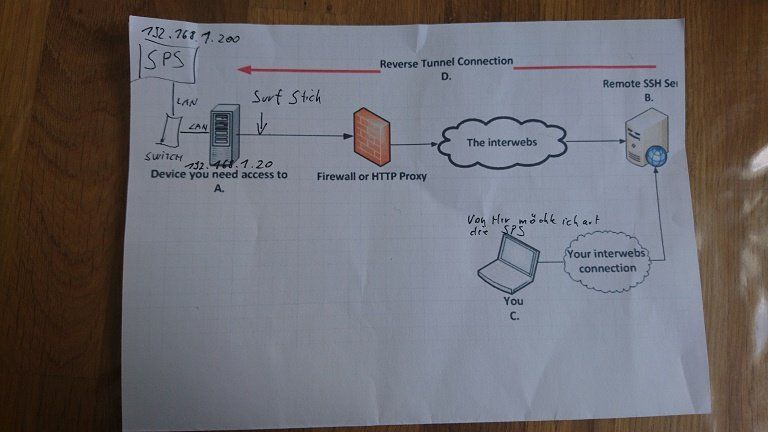 192.168.1.200
SPS
Reverse Tunnel Connection
D.
Remote SSH Ser
B.
LAN
Surf Stich
LAN
SWITCH
192.168.1.20
The interwebs
Device you need access to
A.
Firewall or HTTP Proxy
Von Hier möchte ich auf
die SPS
Your interwebs
connection
You
C.